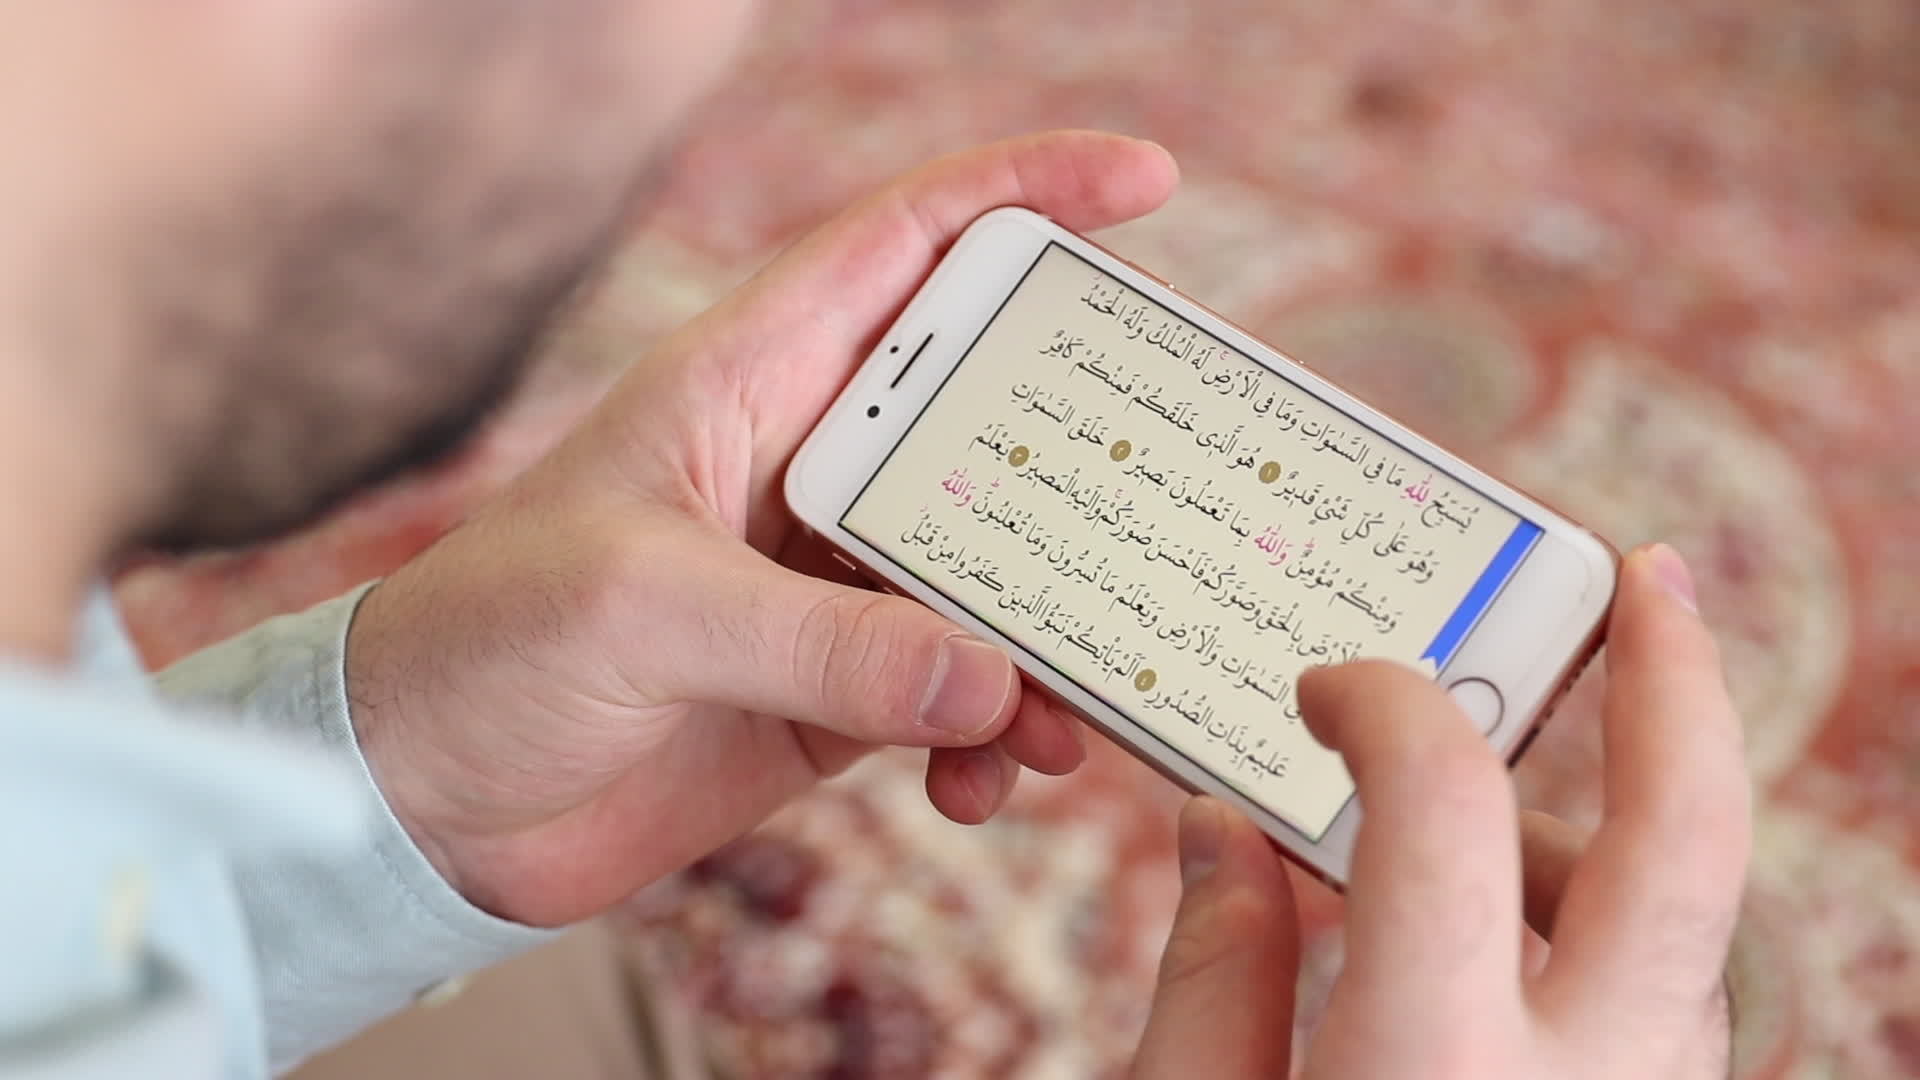 يُسَبِّحُ لِلّٰهِ مَا فِى السَّمٰوَاتِ وَمَا فِى الْاَرْضِۚ لَهُ الْمُلْكُ وَلَهُ الْحَمْدُۘ
وَهُوَ عَلٰى كُلِّ شَىْءٍ قَدٖيرٌ ﴿١﴾ هُوَ الَّذٖى خَلَقَكُمْ فَمِنْكُمْ كَافِرٌ
وَمِنْكُمْ مُؤْمِنٌؕ وَاللّٰهُ بِمَا تَعْمَلُونَ بَصٖيرٌ ﴿٢﴾ خَلَقَ السَّمٰوَاتِ
الْاَرْضَ بِالْحَقِّ وَصَوَّرَكُمْ فَاَحْسَنَ صُوَرَكُمْۚ وَاِلَيْهِ الْمَصٖيرُ ﴿٣﴾ يَعْلَمُ
فِى السَّمٰوَاتِ وَالْاَرْضِ وَيَعْلَمُ مَا تُسِرُّونَ وَمَا تُعْلِنُونَؕ وَاللّٰهُ
عَلٖيمٌ بِذَاتِ الصُّدُورِ ﴿٤﴾ اَلَمْ يَاْتِكُمْ نَبَؤُا الَّذٖينَ كَفَرُوا مِنْ قَبْلُؗ